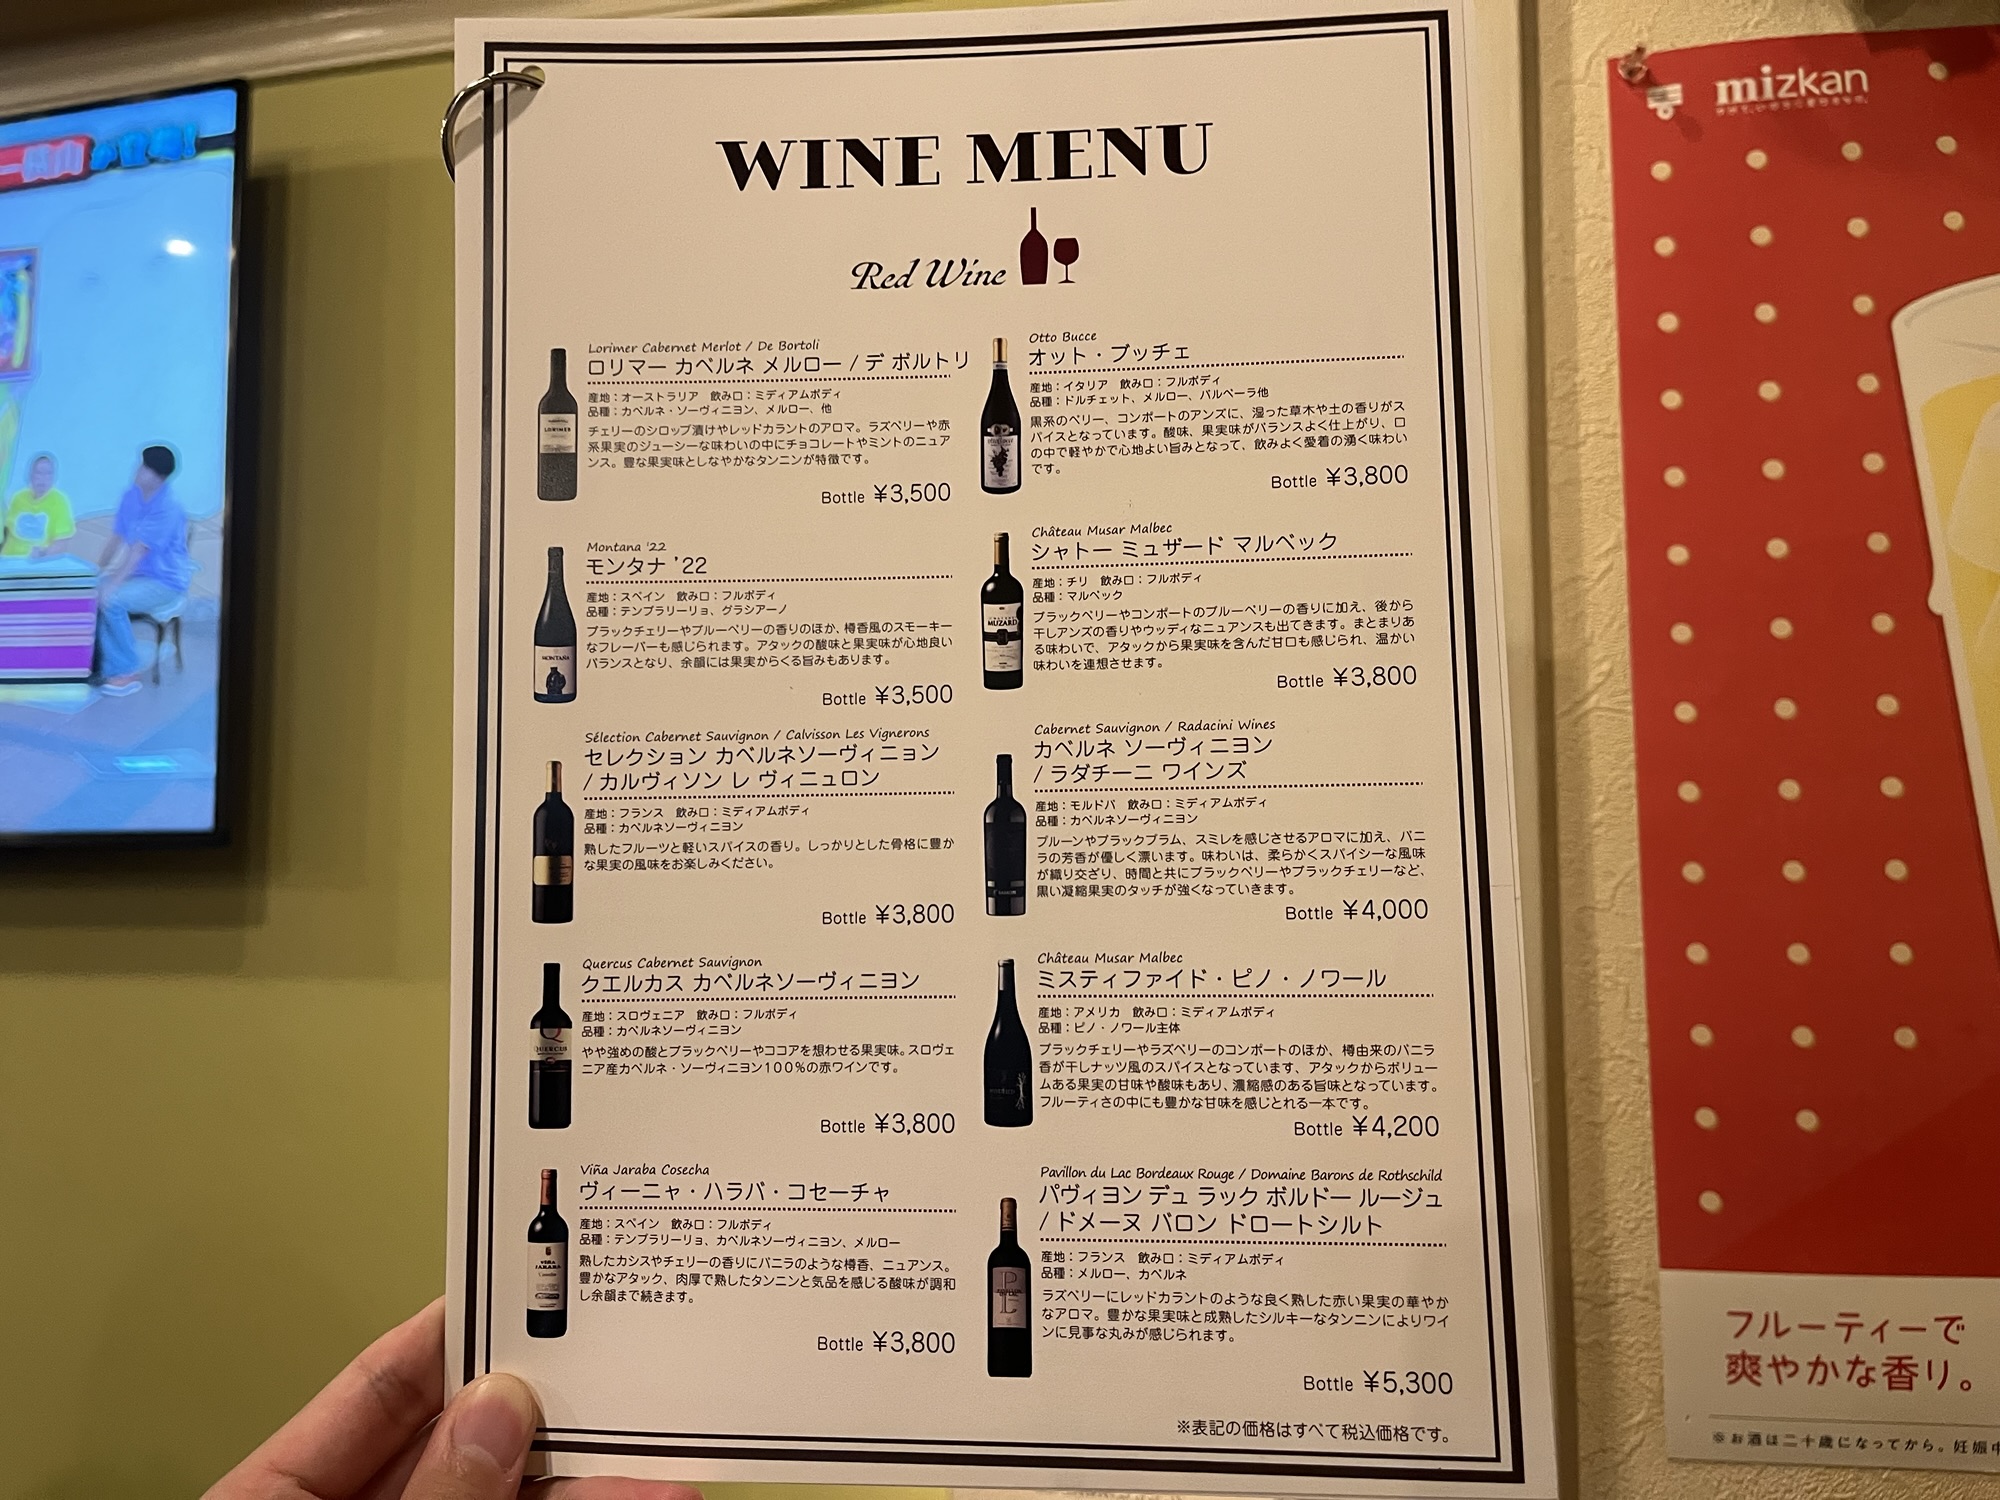 WINE MENU
Red Wine
Lorimer Cabernet Merlot / De Bortoli
ロリマー カベルネ メルロー / デ ボルトリ
産地：オーストラリア 飲み口：ミディアムボディ
品種：カベルネ・ソーヴィニヨン、メルロー、他
チェリーのシロップ漬けやレッドカラントのアロマ。ラズベリーや赤
系果実のジューシーな味わいの中にチョコレートやミントのニュア
ンス。豊な果実味としなやかなタンニンが特徴です。
Bottle ¥3,500
Montana '22
モンタナ '22
産地：スペイン 飲み口：フルボディ
品種：テンプラリーリョ、グラシアーノ
ブラックチェリーやブルーベリーの香りのほか、樽香風のスモーキー
なフレーバーも感じられます。アタックの酸味と果実味が心地良い
バランスとなり、余韻には果実からくる旨みもあります。
Bottle ¥3,500
Sélection Cabernet Sauvignon / Calvisson Les Vignerons
セレクション カベルネソーヴィニョン
/ カルヴィソン レ ヴィニュロン
産地：フランス 飲み口：ミディアムボディ
品種：カベルネソーヴィニヨン
熟したフルーツと軽いスパイスの香り。しっかりとした骨格に豊か
な果実の風味をお楽しみください。
Bottle ¥3,800
Quercus Cabernet Sauvignon
クエルカス カベルネソーヴィニヨン
産地：スロヴェニア 飲み口：フルボディ
品種：カベルネソーヴィニヨン
やや強めの酸とブラックベリーやココアを想わせる果実味。スロヴェ
ニア産カベルネ・ソーヴィニヨン100%の赤ワインです。
Bottle ¥3,800
Viña Jaraba Cosecha
ヴィーニャ・ハラバ・コセーチャ
産地：スペイン 飲み口：フルボディ
品種：テンプラリーリョ、カベルネソーヴィニヨン、メルロー
熟したカシスやチェリーの香りにバニラのような樽香、ニュアンス。
豊かなアタック、肉厚で熟したタンニンと気品を感じる酸味が調和
し余韻まで続きます。
Bottle ¥3,800
Otto Bucce
オット・ブッチェ
産地：イタリア 飲み口：フルボディ
品種：ドルチェット、メルロー、バルベーラ他
黒系のベリー、コンポートのアンズに、湿った草木や土の香りがス
パイスとなっています。酸味、果実味がバランスよく仕上がり、口
の中で軽やかで心地よい旨みとなって、飲みよく愛着の湧く味わい
です。
Bottle ¥3,800
Château Musar Malbec
シャトー ミュザード マルベック
産地：チリ 飲み口：フルボディ
品種：マルベック
ブラックベリーやコンポートのブルーベリーの香りに加え、後から
干しアンズの香りやウッディなニュアンスも出てきます。まとまりあ
る味わいで、アタックから果実味を含んだ甘口も感じられ、温かい
味わいを連想させます。
Bottle ¥3,800
Cabernet Sauvignon / Radacini Wines
カベルネ ソーヴィニヨン
/ ラダチーニ ワインズ
産地：モルドバ 飲み口：ミディアムボディ
品種：カベルネソーヴィニヨン
プルーンやブラックプラム、スミレを感じさせるアロマに加え、バニ
ラの芳香が優しく漂います。味わいは、柔らかくスパイシーな風味
が織り交ざり、時間と共にブラックベリーやブラックチェリーなど、
黒い凝縮果実のタッチが強くなっていきます。
Bottle ¥4,000
Château Musar Malbec
ミスティファイド・ピノ・ノワール
産地：アメリカ 飲み口：ミディアムボディ
品種：ピノ・ノワール主体
ブラックチェリーやラズベリーのコンポートのほか、樽由来のバニラ
香が干しナッツ風のスパイスとなっています、アタックからボリュー
ムある果実の甘味や酸味もあり、濃縮感のある旨味となっています。
フルーティさの中にも豊かな甘味を感じとれる一本です。
Bottle ¥4,200
Pavillon du Lac Bordeaux Rouge / Domaine Barons de Rothschild
パヴィヨン デュ ラック ボルドー ルージュ
/ ドメーヌ バロン ドロートシルト
産地：フランス 飲み口：ミディアムボディ
品種：メルロー、カベルネ
ラズベリーにレッドカラントのような良く熟した赤い果実の華やか
なアロマ。豊かな果実味と成熟したシルキーなタンニンによりワイ
ンに見事な丸みが感じられます。
Bottle ¥5,300
※表記の価格はすべて税込価格です。
LORIMER
MONTAÑA
QUERCUS
VIÑA
JARABA
MUZARD
mizkan
フルーティーで
爽やかな香り。
※お酒は二十歳になってから。妊娠中
が登場!